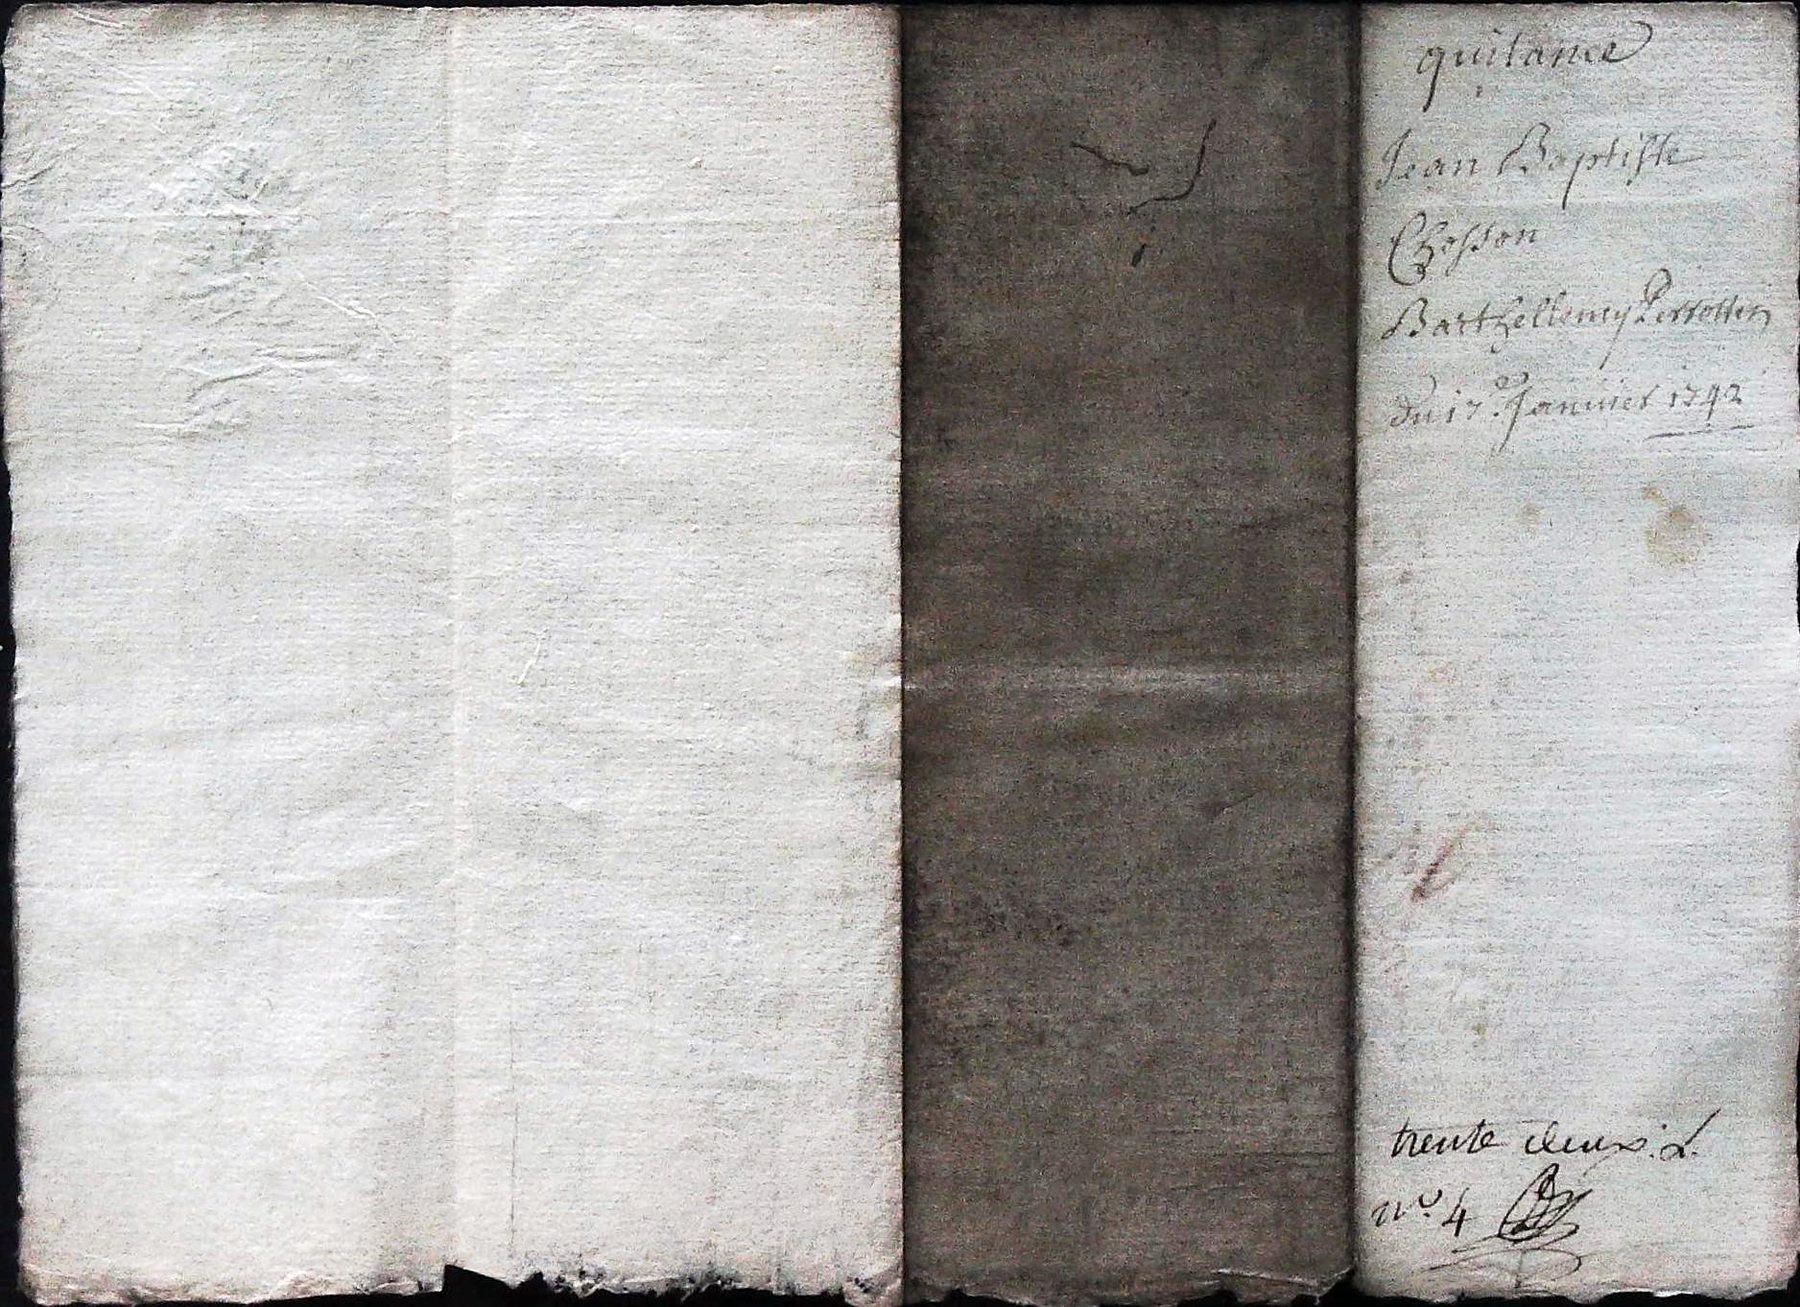 quitance
Jean Baptiste
Chosson
Barthellemy Perrottin
du 17e. Janvier 1792
trente deux. L.
no. 4